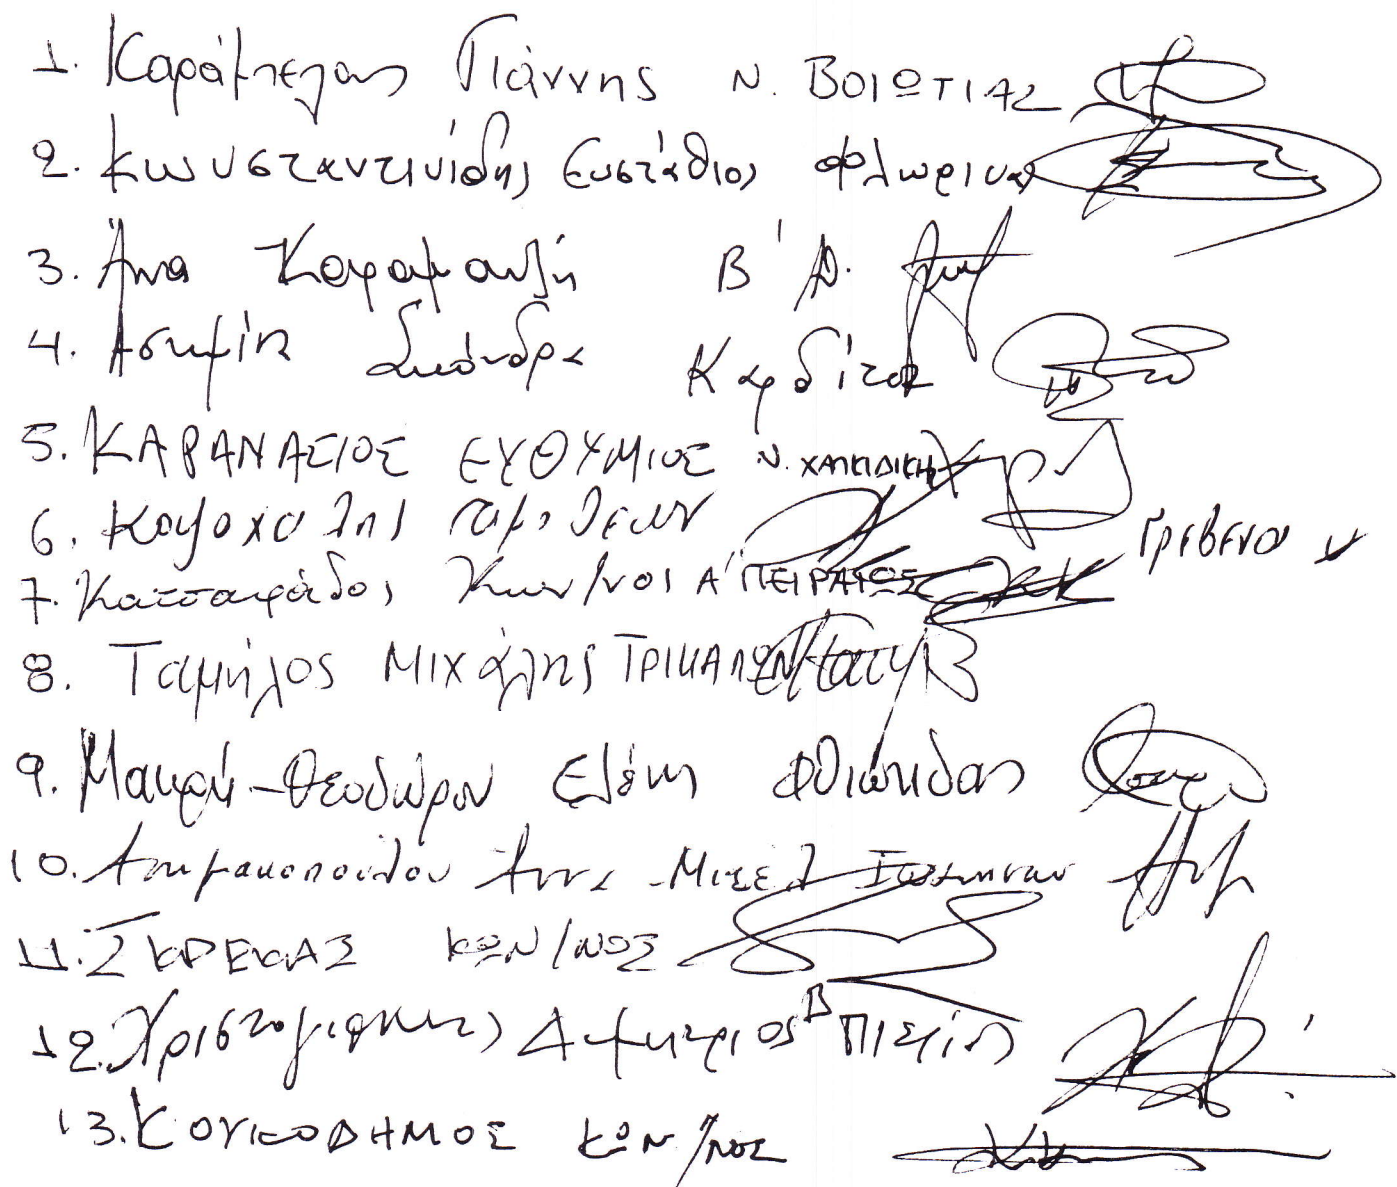 1. Καράμπελας Γιάννης Ν. ΒΟΙΩΤΙΑΣ
2. Κωνσταντινίδης Ευστάθιος Φλώρινα
3. Άννα Καραμανλή Β'Α.
4. Ασημίνα Σκόνδρα Καρδίτσα
5. ΚΑΡΑΝΑΣΙΟΣ ΕΥΘΥΜΙΟΣ Ν. ΧΑΛΚΙΔΙΚΗΣ
6. Γρεβενά
7. Κατσαφάδος Κων/νος Α' ΠΕΙΡΑΙΩΣ
8. Ταμήλος ΜΙΧάλης ΤΡΙΚΑΛΩΝ
9. Μακρή-Θεοδώρου Ελένη Φθιώτιδας
10. Ασημακοπούλου Άννα-Μισέλ Ιωαννίνων
11. ΣΚΡΕΚΑΣ ΚΩΝ/ΝΟΣ
12. Χριστογιάννης Δημήτριος
13. ΚΟΥΚΟΔΗΜΟΣ ΚΩΝ/ΝΟΣ